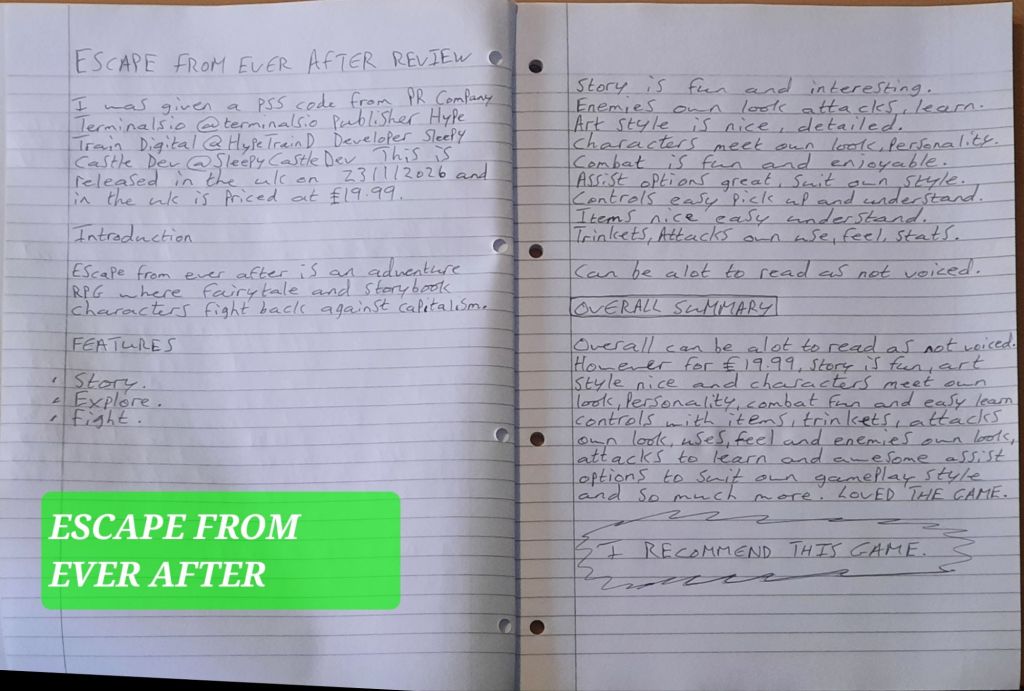 ESCAPE FROM EVER AFTER REVIEW
I was given a PS5 code from PR Company
Terminalsio @terminalsio Publisher Hype
Train Digital @HypeTrainD Developer Sleepy
Castle Dev @SleepyCastleDev This is
released in the uk on 23/1/2026 and
in the uk is Priced at £19.99.
Introduction
Escape from ever after is an adventure
RPG where fairytale and storybook
characters fight back against capitalism.
FEATURES
• Story.
• Explore.
• Fight.
ESCAPE FROM
EVER AFTER
Story is fun and interesting.
Enemies own look attacks, learn.
Art style is nice, detailed.
Characters meet own look, Personality.
Combat is fun and enjoyable.
Assist options great, suit own style.
Controls easy pick up and understand.
Items nice easy understand.
Trinkets, Attacks own use, feel, stats.
Can be alot to read as not voiced.
OVERALL SUMMARY
Overall can be alot to read as not voiced.
However for £19.99, story is fun, art
style nice and characters meet own
look, Personality, combat fun and easy learn
controls with items, trinkets, attacks
own look, uses, feel and enemies own look,
attacks to learn and awesome assist
options to suit own gameplay style
and so much more. LOVED THE GAME.
I RECOMMEND THIS GAME.